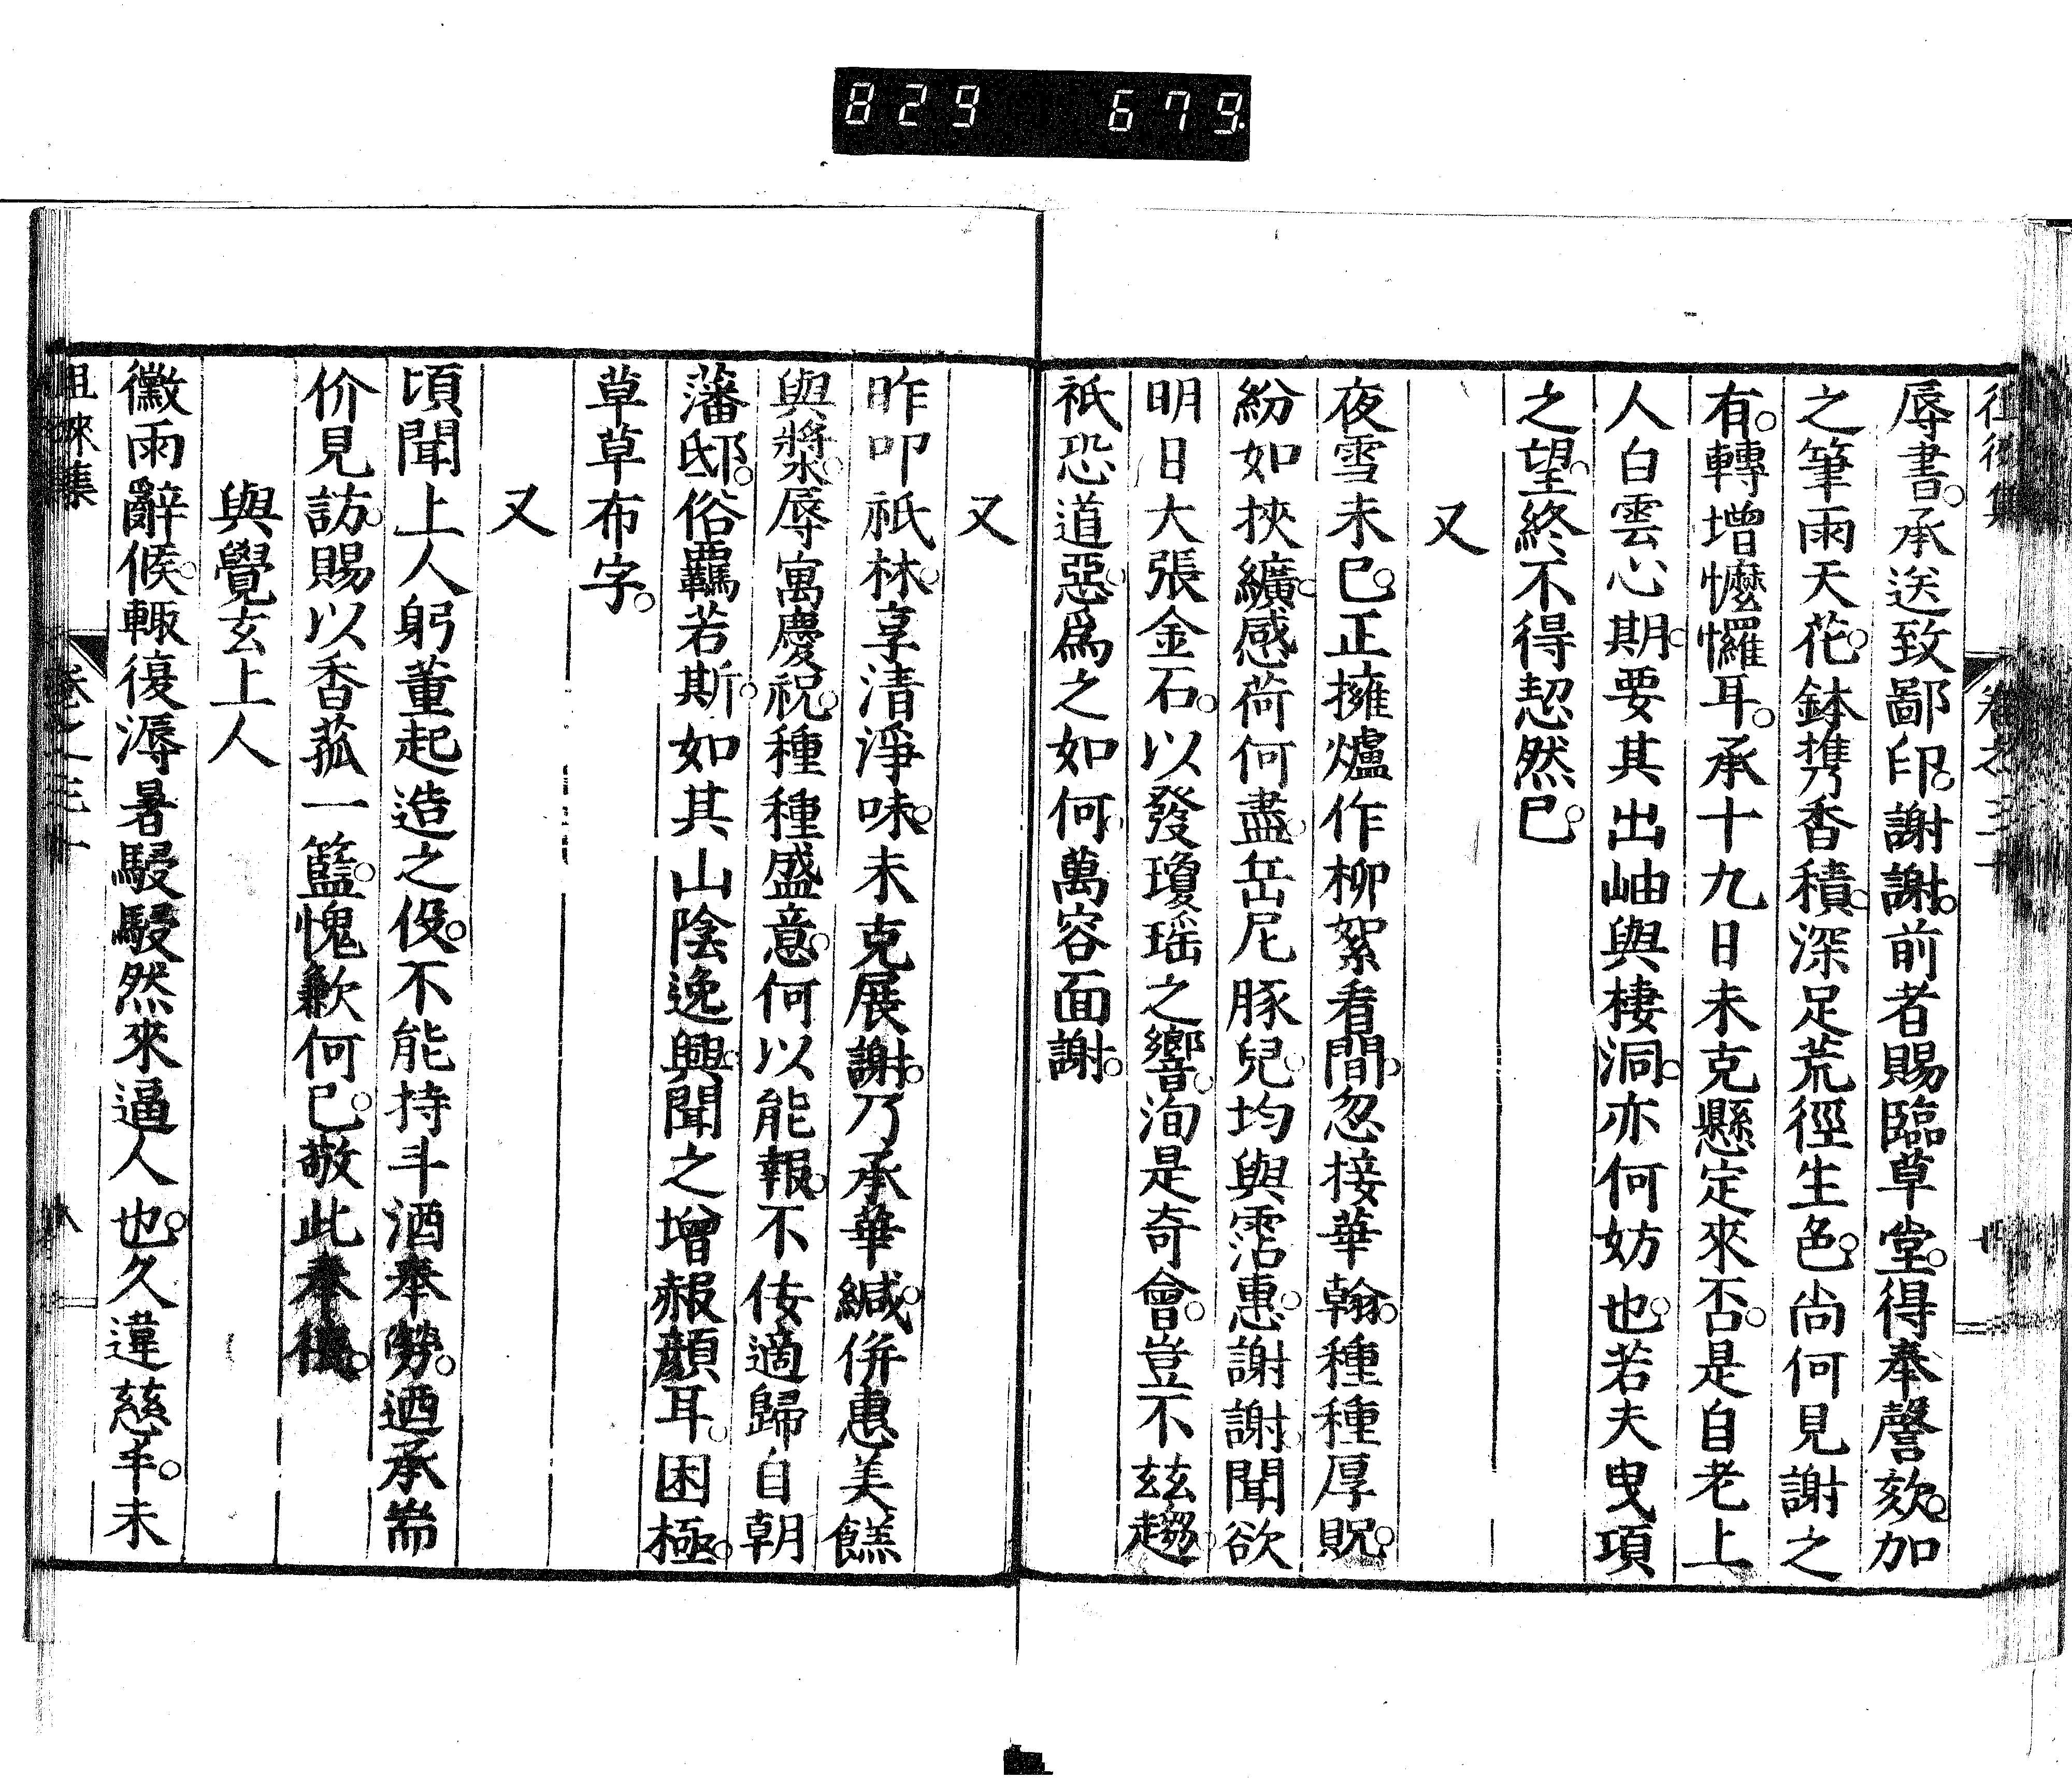 829 679
辱書。承送致鄙印。謝謝。前者賜臨草堂。得奉謦欬。加
之筆雨天花。鉢擕香積。深足荒徑生色。尚何見謝之
有。轉增懡㦬耳。承十九日未克懸定來否。是自老上
人白雲心期。要其出岫與棲洞。亦何妨也。若夫曳項
之望。終不得恝然已。
又
夜雪未已。正擁爐作柳絮看間。忽接華翰。種種厚貺。
紛如挾纊。感荷何盡。岳尼豚兒。均與霑惠。謝謝。聞欲
明日大張金石。以發瓊瑤之響。洵是奇會。豈不玆趨。
祇恐道惡。爲之如何。萬容面謝。
又
昨叩祇林。享清淨味。未克展謝。乃承華緘。併惠美餻
與漿。辱寓慶祝。種種盛意。何以能報。不佞適歸自朝
藩邸。俗羈若斯。如其山陰逸興。聞之增赧顔耳。困極。
草草布字。
又
頃聞上人躬董起造之役。不能持斗酒奉勞。迺承耑
价見訪。賜以香菰一籃。愧歉何已。敬此奉復。
與覺玄上人
黴雨辭候。輙復溽暑駸駸然來逼人也。久違慈羊。未
徂徠集 卷之三十 八